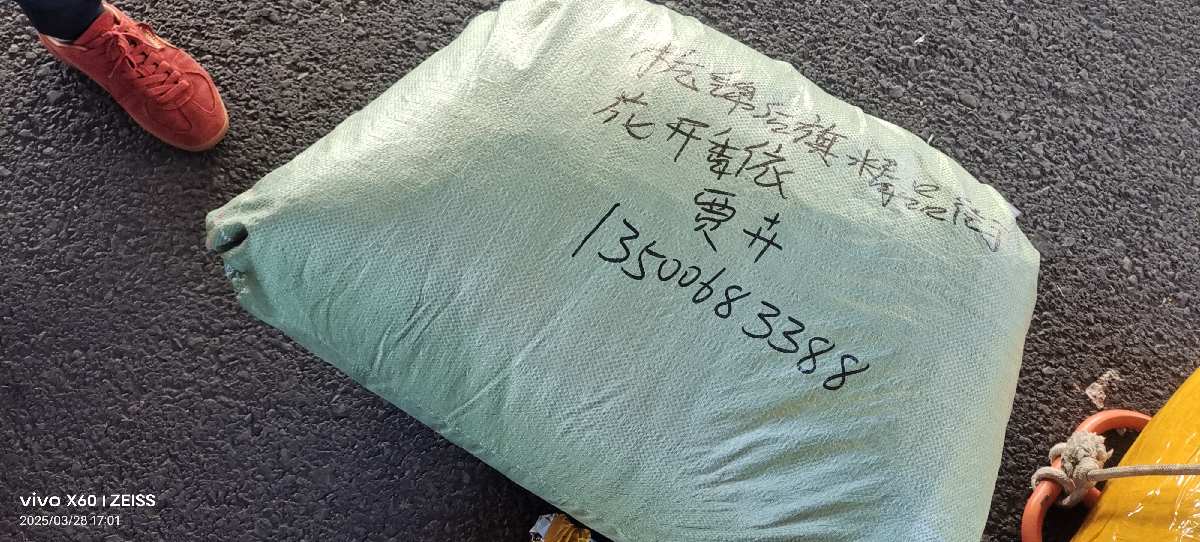 杭锦后旗精品街
花开春依
贾卉
13500683388
vivo X60 | ZEISS
2025/03/28 17:01